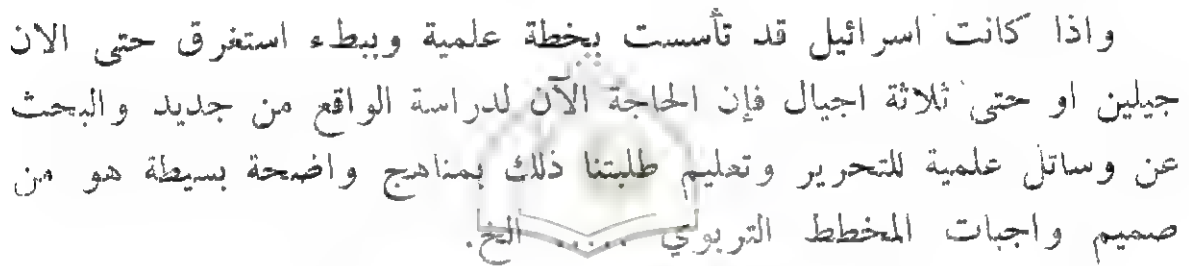 واذا كانت اسرائيل قد تأسست بخطة علمية وببطء استغرق حتى الان
جيلين او حتى ثلاثة اجيال فإن الحاجة الآن لدراسة الواقع من جديد والبحث
عن وسائل علمية للتحرير وتعليم طلبتنا ذلك بمناهج واضحة بسيطة هو من
صميم واجبات المخطط التربوي ..... الخ.